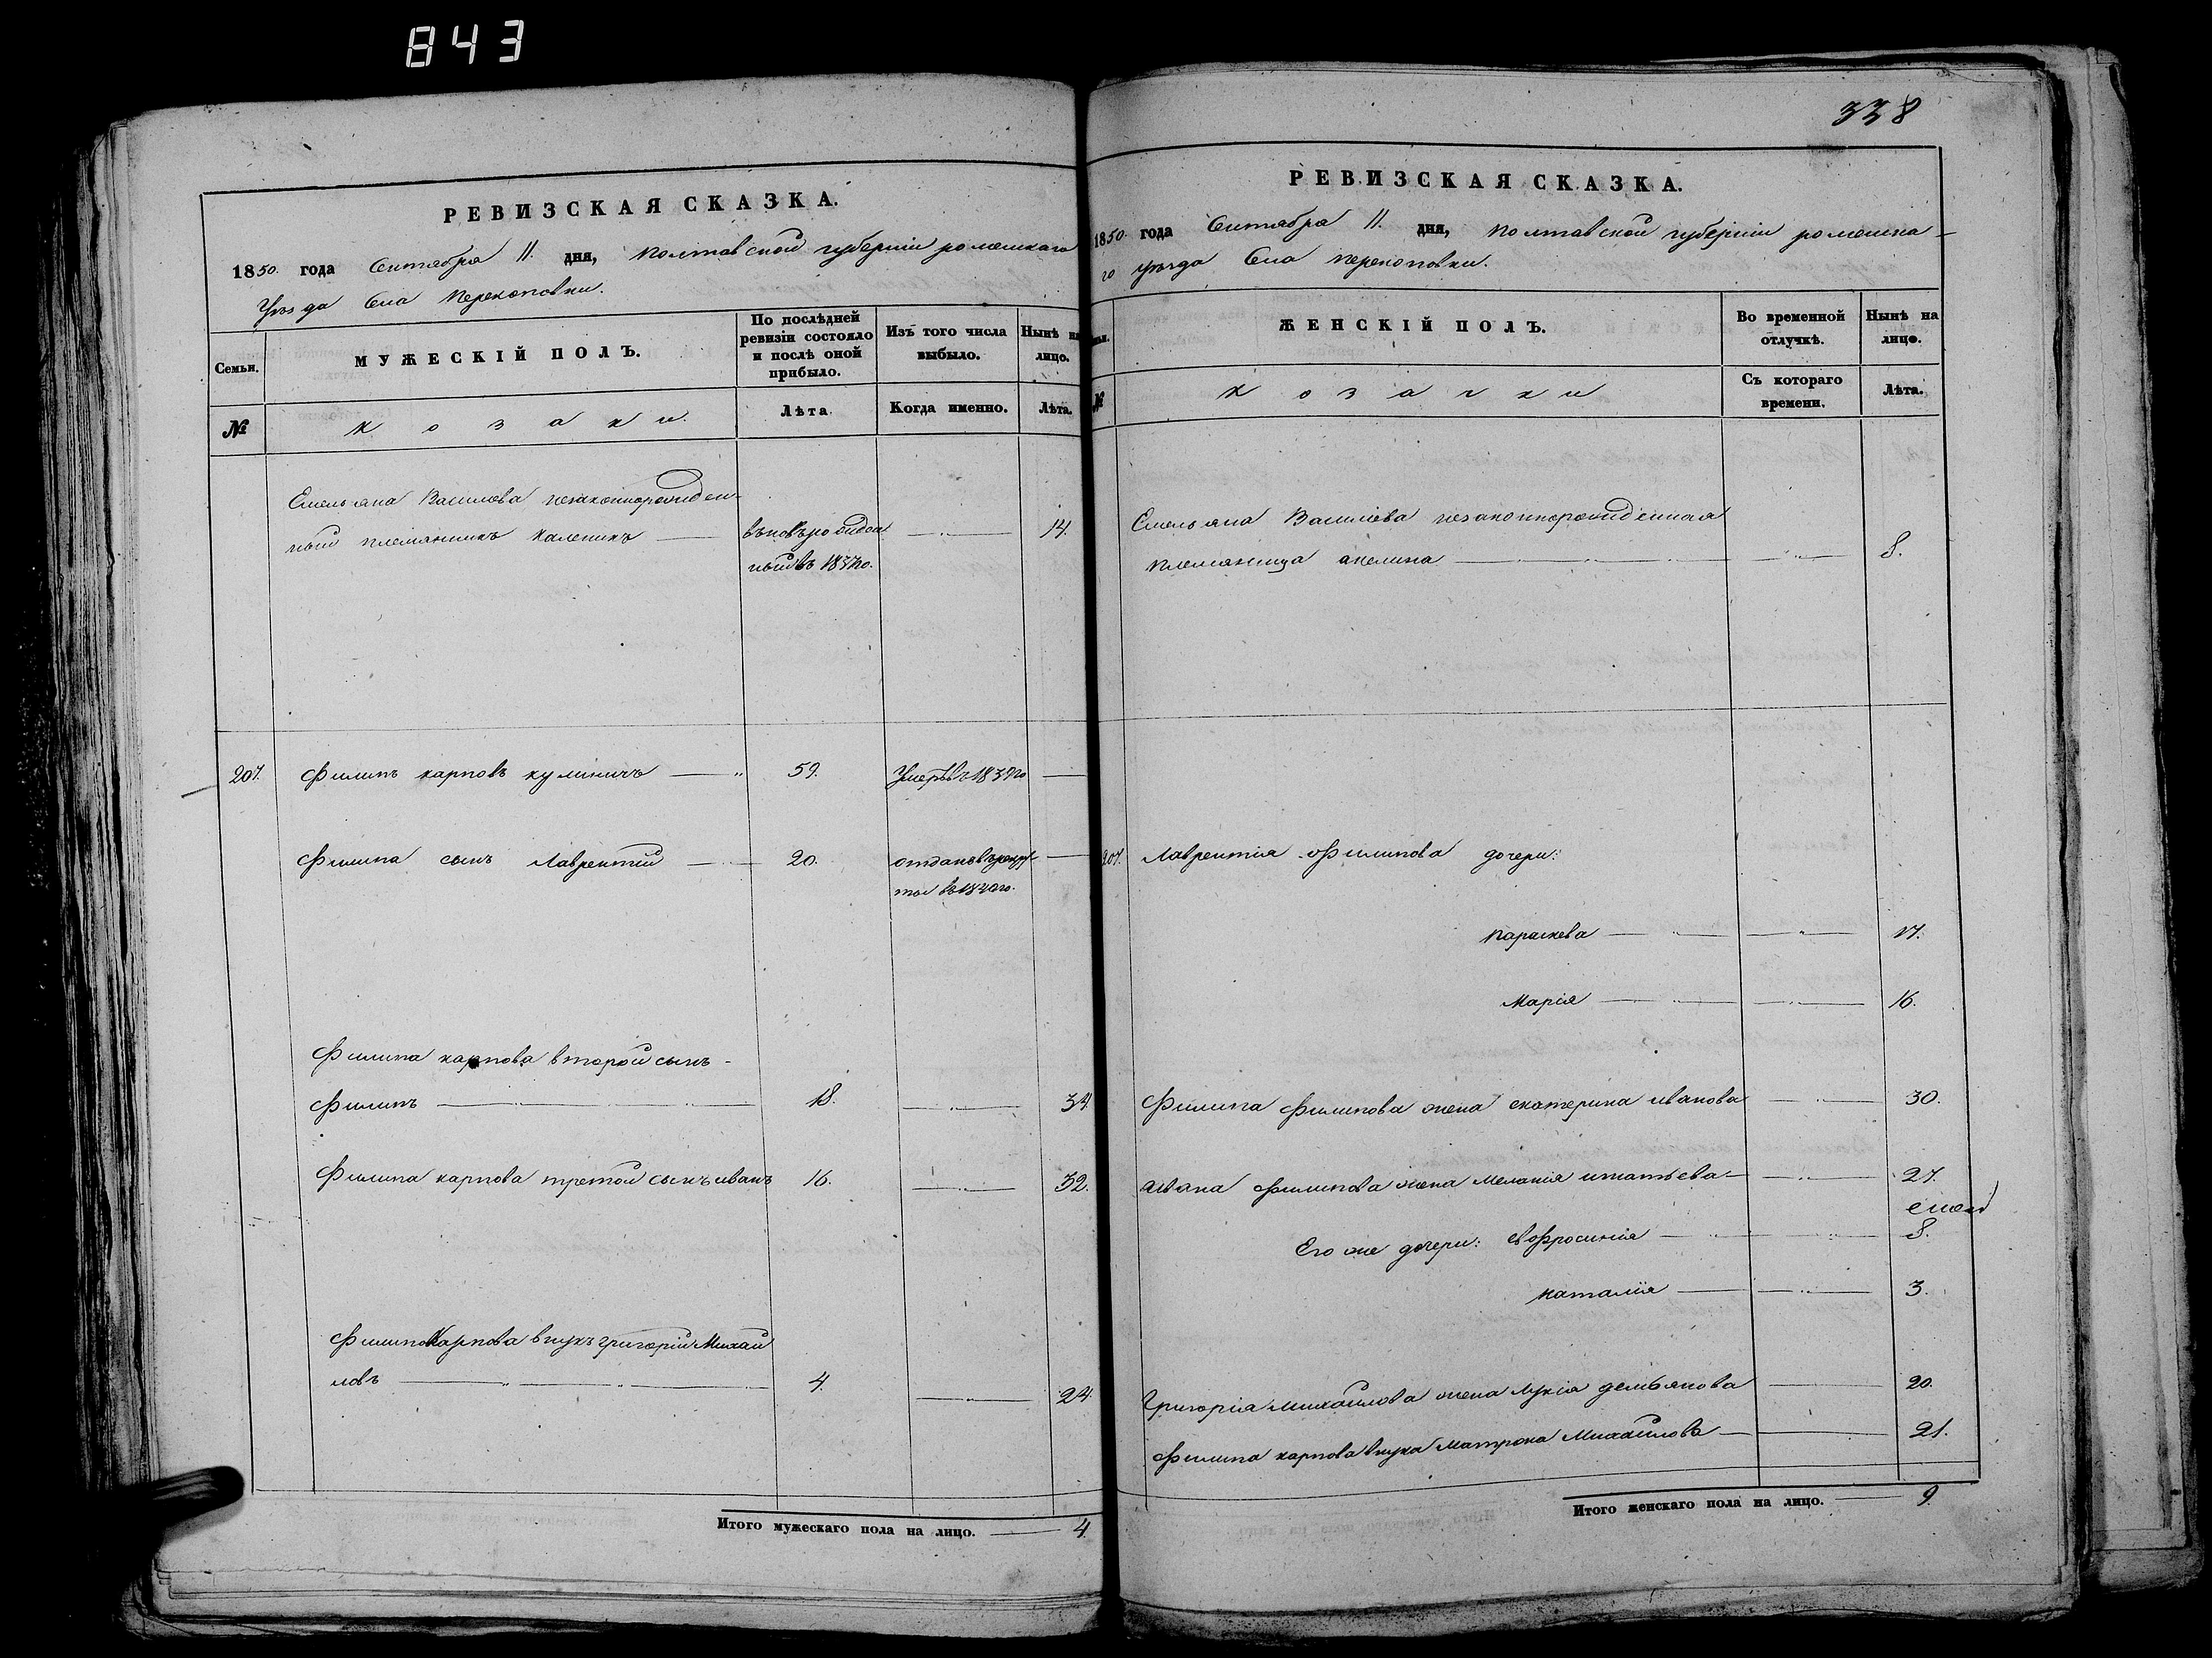 843
РЕВИЗСКАЯ СКАЗКА.
1850. года Сентября 11. дня, Полтавской губерніи роменскаго
Уезда Села Перекоповки.
Семьи.
МУЖЕСКІЙ ПОЛЪ.
По послѣдней ревизіи состояло и послѣ оной прибыло.
Изъ того числа выбыло.
Нынѣ на лицо.
№
козаки.
Лѣта.
Когда именно.
Лѣта.
Емельяна Васильева незаконнорожден-
ный племянникъ Каленикъ
въновърожден
14.
ныйвъ 1837го.
207. Филипъ карповъ кулиничъ 59. Умервъ1839го
Филипа сынъ Лаврентій 20. отданъврекру-
ты въ1840го.
Филипа карпова второй сынъ-
Филипъ 18. 34
Филипа карпова третой сынъ иванъ 16. 32.
Филипа Карпова внукъ григорій Михай
ловъ 4. 24.
Итого мужескаго пола на лицо. 4.
338
РЕВИЗСКАЯ СКАЗКА.
1850. года Сентября 11. дня, Полтавской губерніи роменска-
го уезда Села перекоповки.
ЖЕНСКІЙ ПОЛЪ.
Во временной отлучкѣ.
Нынѣ на лицо.
№
козачки
Съ котораго времени.
Лѣта.
Емельяна Василіева незаконнорожденная
племяница акелина 8.
207. Лаврентія Филипова дочери:
параскева 17.
Марія 16.
Филипа Филипова жена екатерина иванова 30.
ивана Филипова жена Меланія игнатьева- 27.
Его же дочери: евфросинія 8.
наталія 3.
Григорія михайлова жена Лукія демьянова 20.
Филипа карпова внука Матрона Михайлова 21.
Итого женскаго пола на лицо. 9